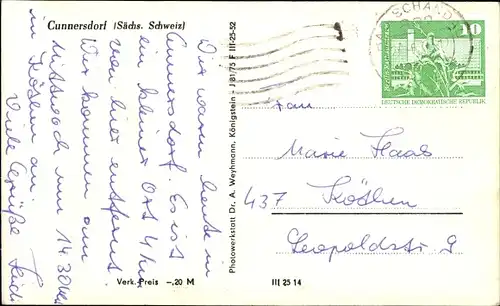 Cunnersdorf (Sächs. Schweiz)
Wir waren heute in
Cunnersdorf. Es ist
ein kleiner Ort 4 km
von hier entfernt.
Wir kommen am
Mittwoch um 14.30 Uhr
in Köthen an.
Viele Grüße
Verk.-Preis -,20 M
Photowerkstatt Dr. A. Weyhmann, Königstein - J 81/75 F III-25-52
SCHANDAU
10
DEUTSCHE DEMOKRATISCHE REPUBLIK
Frau
Marie Haas
437 Köthen
Leopoldstr. 9
III 25 14